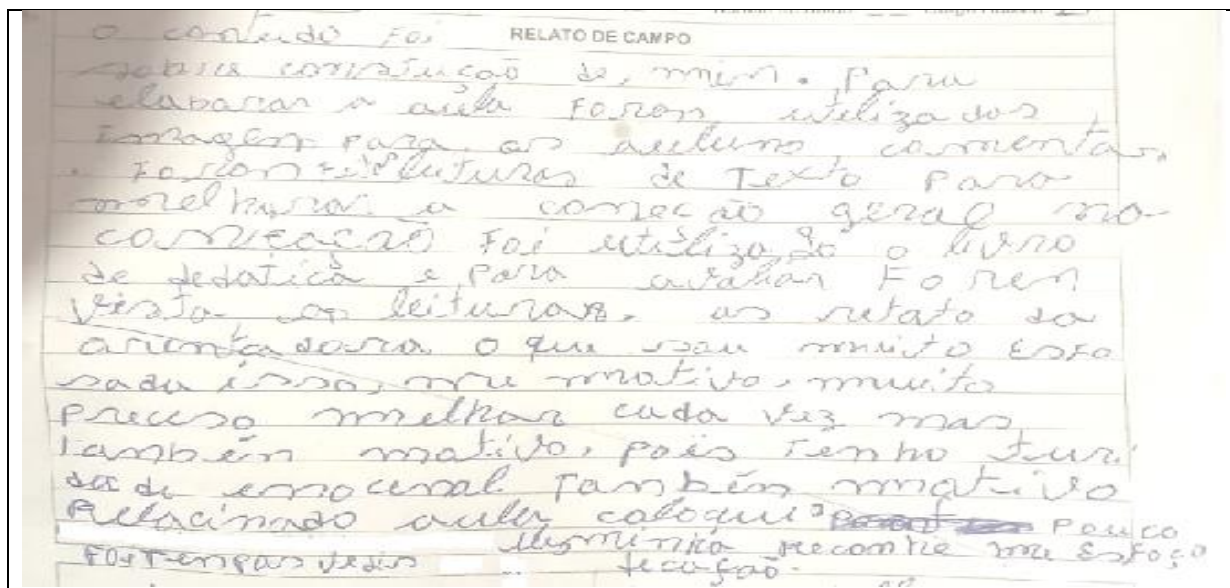 RELATO DE CAMPO
O conteudo Foi
sobre constução de, mim. Para
elabarar a aula Foram utilizados
Imagem para os aluno comentar
. Foram leituras de Texto Para
melhurar a coneção geral na
Foi utilizado o livro
de dedatica e para avaliar Foren
vista as leituras, as relato da
orientadora o que sou muito Esfo
sada isso, me motivo, muito
preciso melhar cada vez mas,
também motivo, pois Tenho
dade emocenal Também motivo
Relacinado aula coloquei Pouco
reconhe me Esfoço